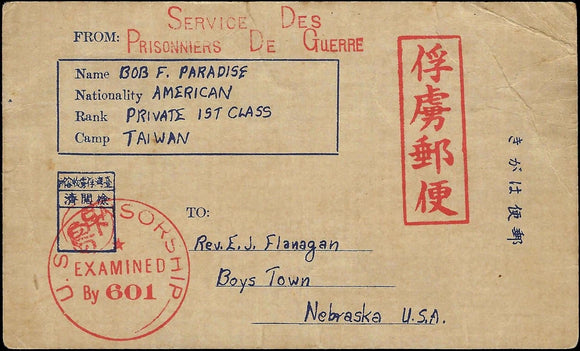 SERVICE DES
PRISONNIERS DE GUERRE
FROM:
Name BOB F. PARADISE
Nationality AMERICAN
Rank PRIVATE 1ST CLASS
Camp TAIWAN
俘虜郵便
きがは便郵
濟閲檢
U.S. SORSHIP
EXAMINED
By 601
TO:
Rev. E. J. Flanagan
Boys Town
Nebraska U.S.A.